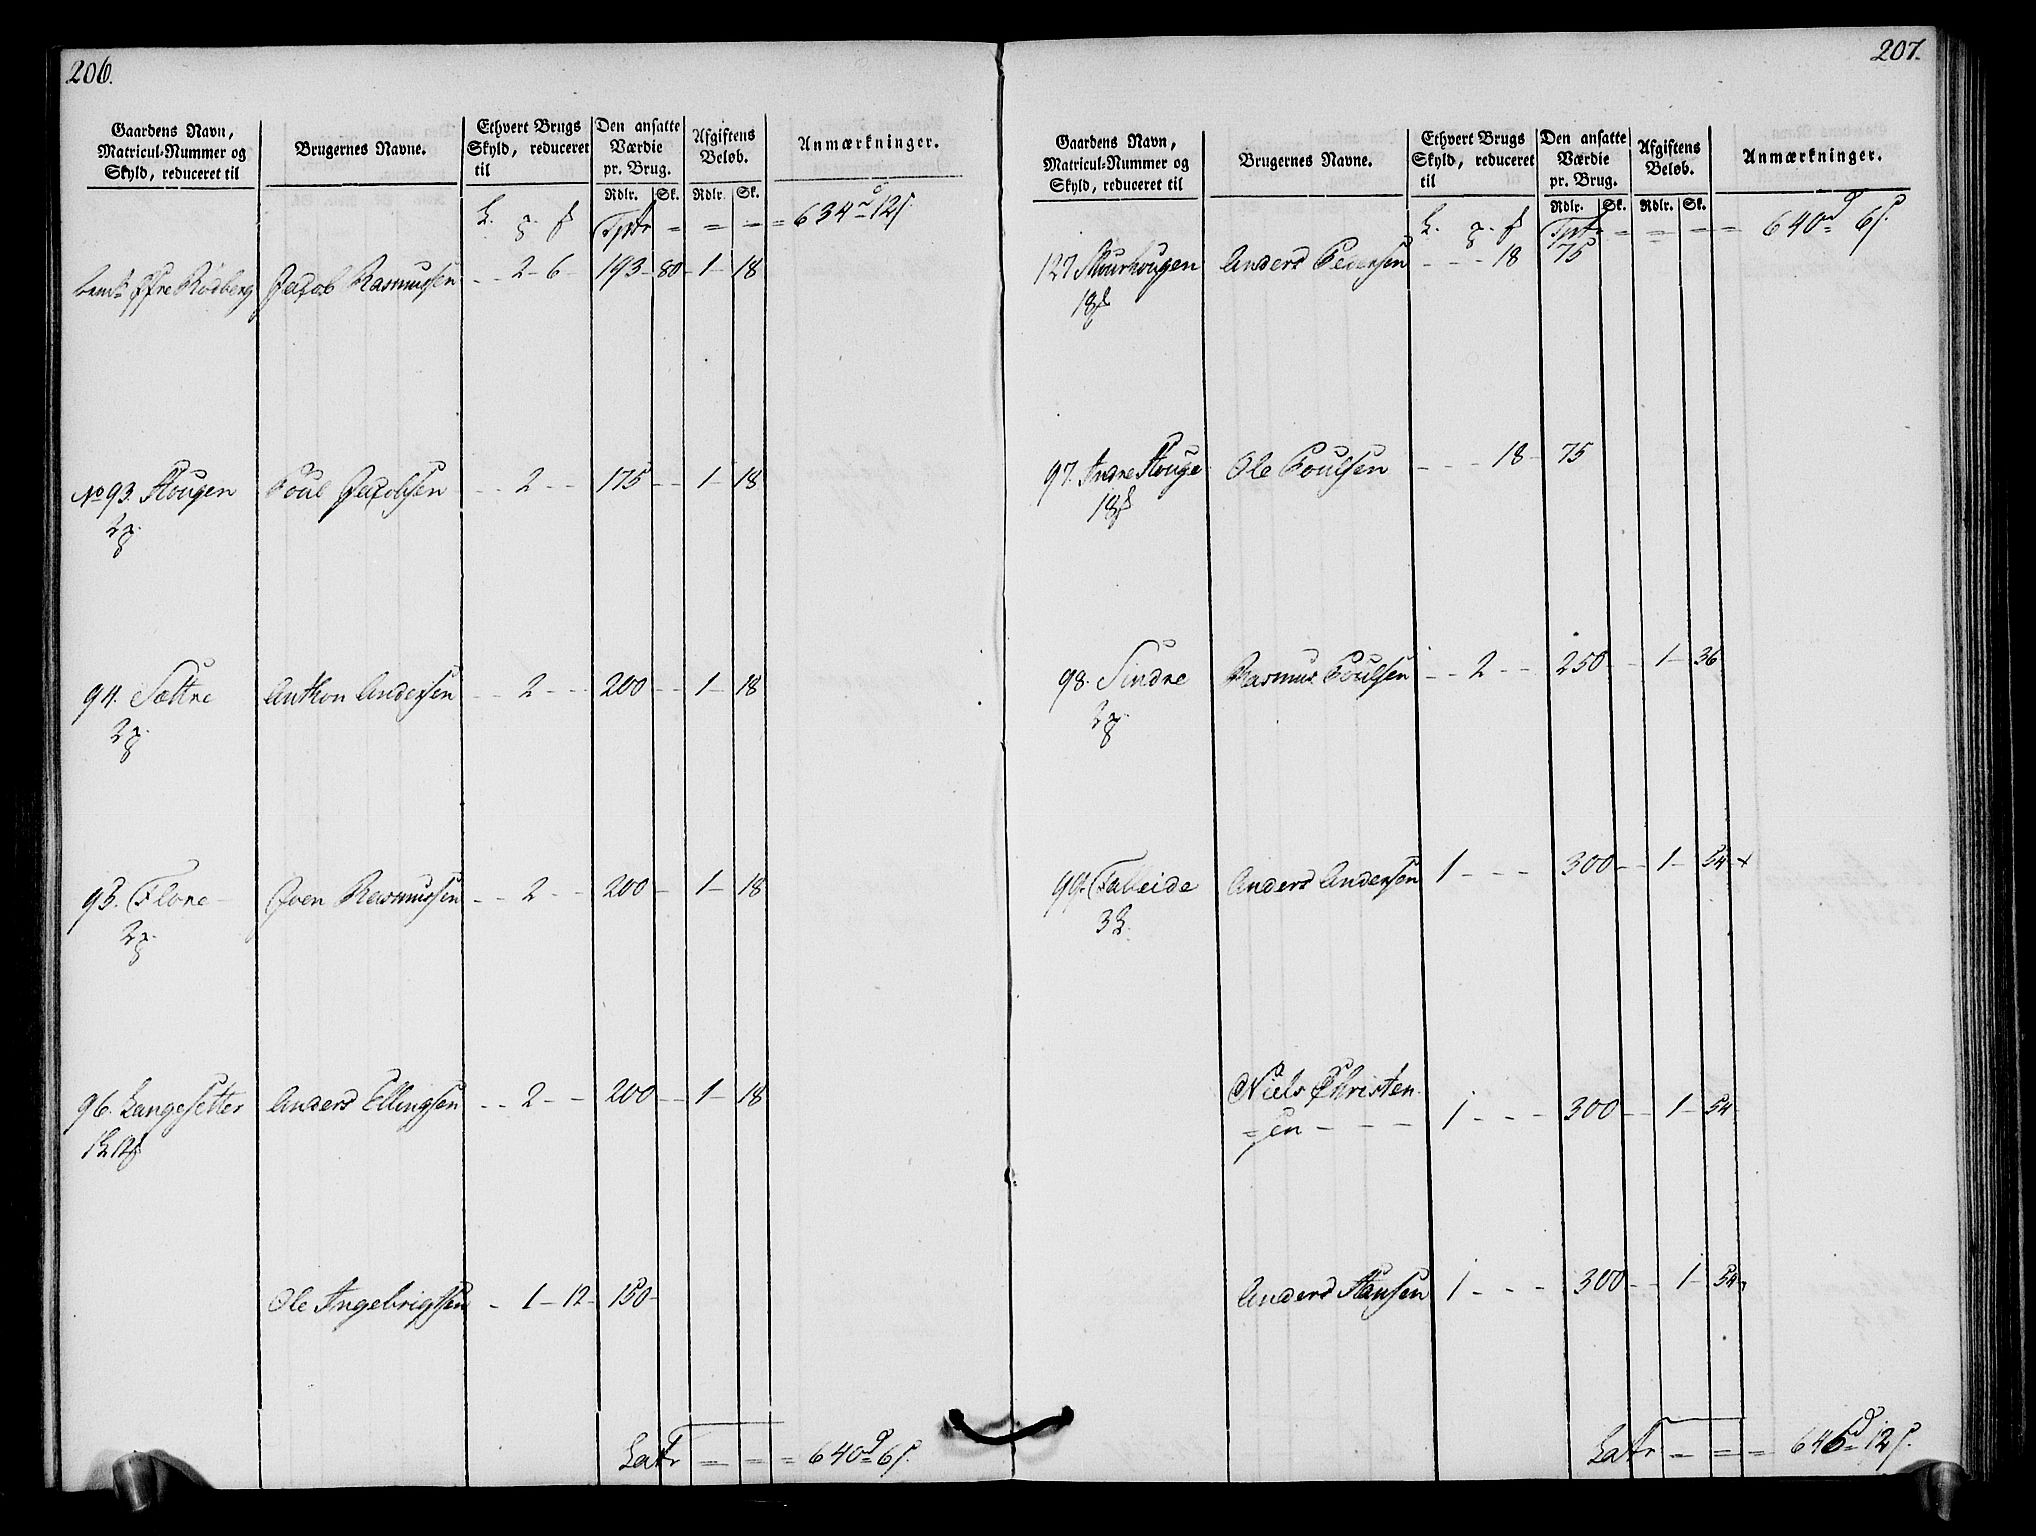 206.
Gaardens Navn, Matricul-Nummer og Skyld, reduceret til | Brugernes Navne. | Ethvert Brugs Skyld, reduceret til | Den ansatte Værdie pr. Brug. Rdlr. Sk. | Afgiftens Beløb. Rdlr. Sk. | Anmærkninger.
Tptr = = = = 634 d 12 s.
Øfre Rødberg Jacob Rasmussen - - 2 - 6 - 193 - 80 - 1 - 18
No 93. Hougen Poul Jacobsen - - 2 - - 175 - - 1 - 18
2
94. Sættre Anthon Andersen - - 2 - - 200 - - 1 - 18
2
95. Flore - Iven Rasmussen - - 2 - - 200 - 1 - 18
2
96. Langesetter Anders Ellingsen - - 2 - - 200 - - 1 - 18
Ole Ingebrigtsen - 1 - 12 - 150 -
Latr = = = 640 d 6 s.
207.
Gaardens Navn, Matricul-Nummer og Skyld, reduceret til | Brugernes Navne. | Ethvert Brugs Skyld, reduceret til | Den ansatte Værdie pr. Brug. Rdlr. Sk. | Afgiftens Beløb. Rdlr. Sk. | Anmærkninger.
Tptr = = - = 640 d 6 s.
127 Muurhougen Anders Pedersen - - - 18 75
18
97. Indre Houge Ole Poulsen - - - 18 - 75
18
98. Sindre Rasmus Poulsen - - 2 - - 250 - - 1 - 36
2
99. Falleide Anders Andersen 1 - - - 300 - - 1 - 54
3
Niels Christen
= sen - - - 1 - - - 300 - - 1 - 54
Anders Hansen 1 - - - 300 - - 1 - 54
Latr = = = 646 d 12 s.